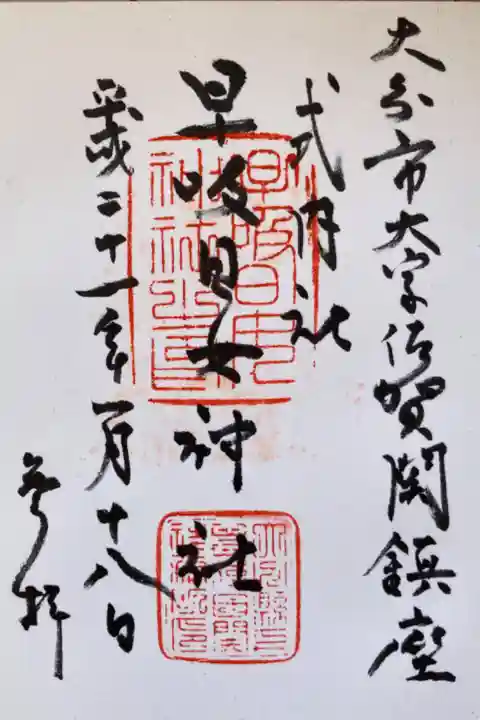 大分市大字佐賀関鎮座
式内社
早吸日女神社
平成三十一年一月十八日
参拝
早吸日女神社之印